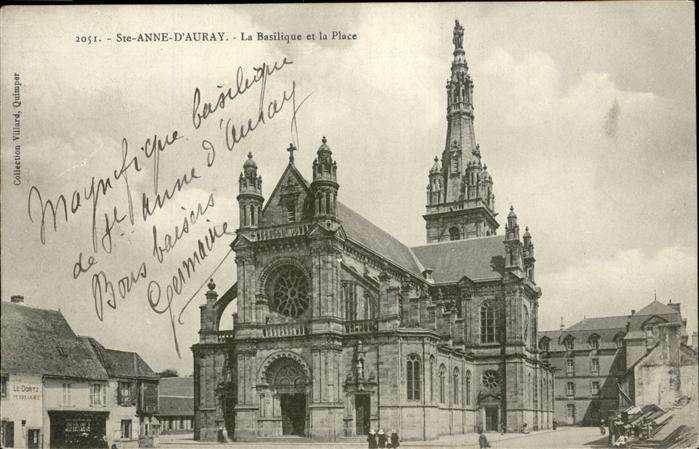 2051. - Ste-ANNE-D'AURAY. - La Basilique et la Place
Collection Villard, Quimper
Magnifique basilique
de Ste Anne d'Auray
Bons baisers
Germaine
LE DORTZ